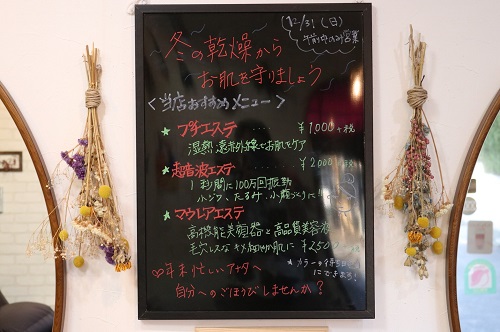 12/31(日)
午前中のみ営業
冬の乾燥から
お肌を守りましょう
<当店おすすめメニュー>
★ プチエステ ‥‥ ¥1000+税
湿熱遠赤外線でお肌をケア
★ 超音波エステ ‥‥ ¥2000+税
1秒間に100万回振動
小ジワ、たるみ、小顔づくりに
★ マウレアエステ
高機能美顔器と高品質美容液
毛穴レスなキメ細やか肌に ¥250
★カラーの待ち
にできます!
♡年末忙しいアナタへ
自分へのごほうびしませんか?